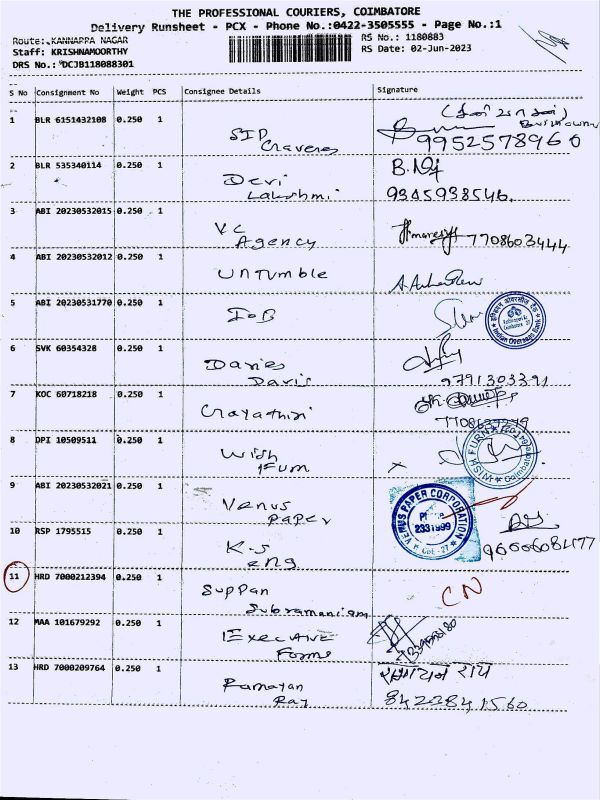 THE PROFESSIONAL COURIERS, COIMBATORE
Delivery Runsheet - PCX - Phone No.:0422-3505555 - Page No.:1
Route: KANNAPPA NAGAR
RS No.: 1180883
Staff: KRISHNAMOORTHY
RS Date: 02-Jun-2023
DRS No.: DCJB118088301
S No Consignment No Weight PCS Consignee Details Signature
1 BLR 6151432108 0.250 1 SID
9952578960
2 BLR 535340114 0.250 1 Devi Lakshmi
9345938546.
3 ABI 20230532015 0.250 1 V.C Agency 7708603444
4 ABI 20230532012 0.250 1 UNTUMble
5 ABI 20230531770 0.250 1 IOB
Indian Overseas Bank
6 SVK 60354328 0.250 1 Davies Davis
9791303391
7 KOC 60718218 0.250 1 Gayathiri
8 OPI 10509511 0.250 1 Wish FURN
WISH FURN
Coimbatore
9 ABI 20230532021 0.250 1 Venus Paper
VENUS PAPER CORPORATION
2331999
CBE-27
10 RSP 1795515 0.250 1 K.S eng
11 HRD 7000212394 0.250 1 Suppan Subramaniam CN
12 MAA 101679292 0.250 1 Forms
13 HRD 7000209764 0.250 1 Ramayan Ray
8423841560